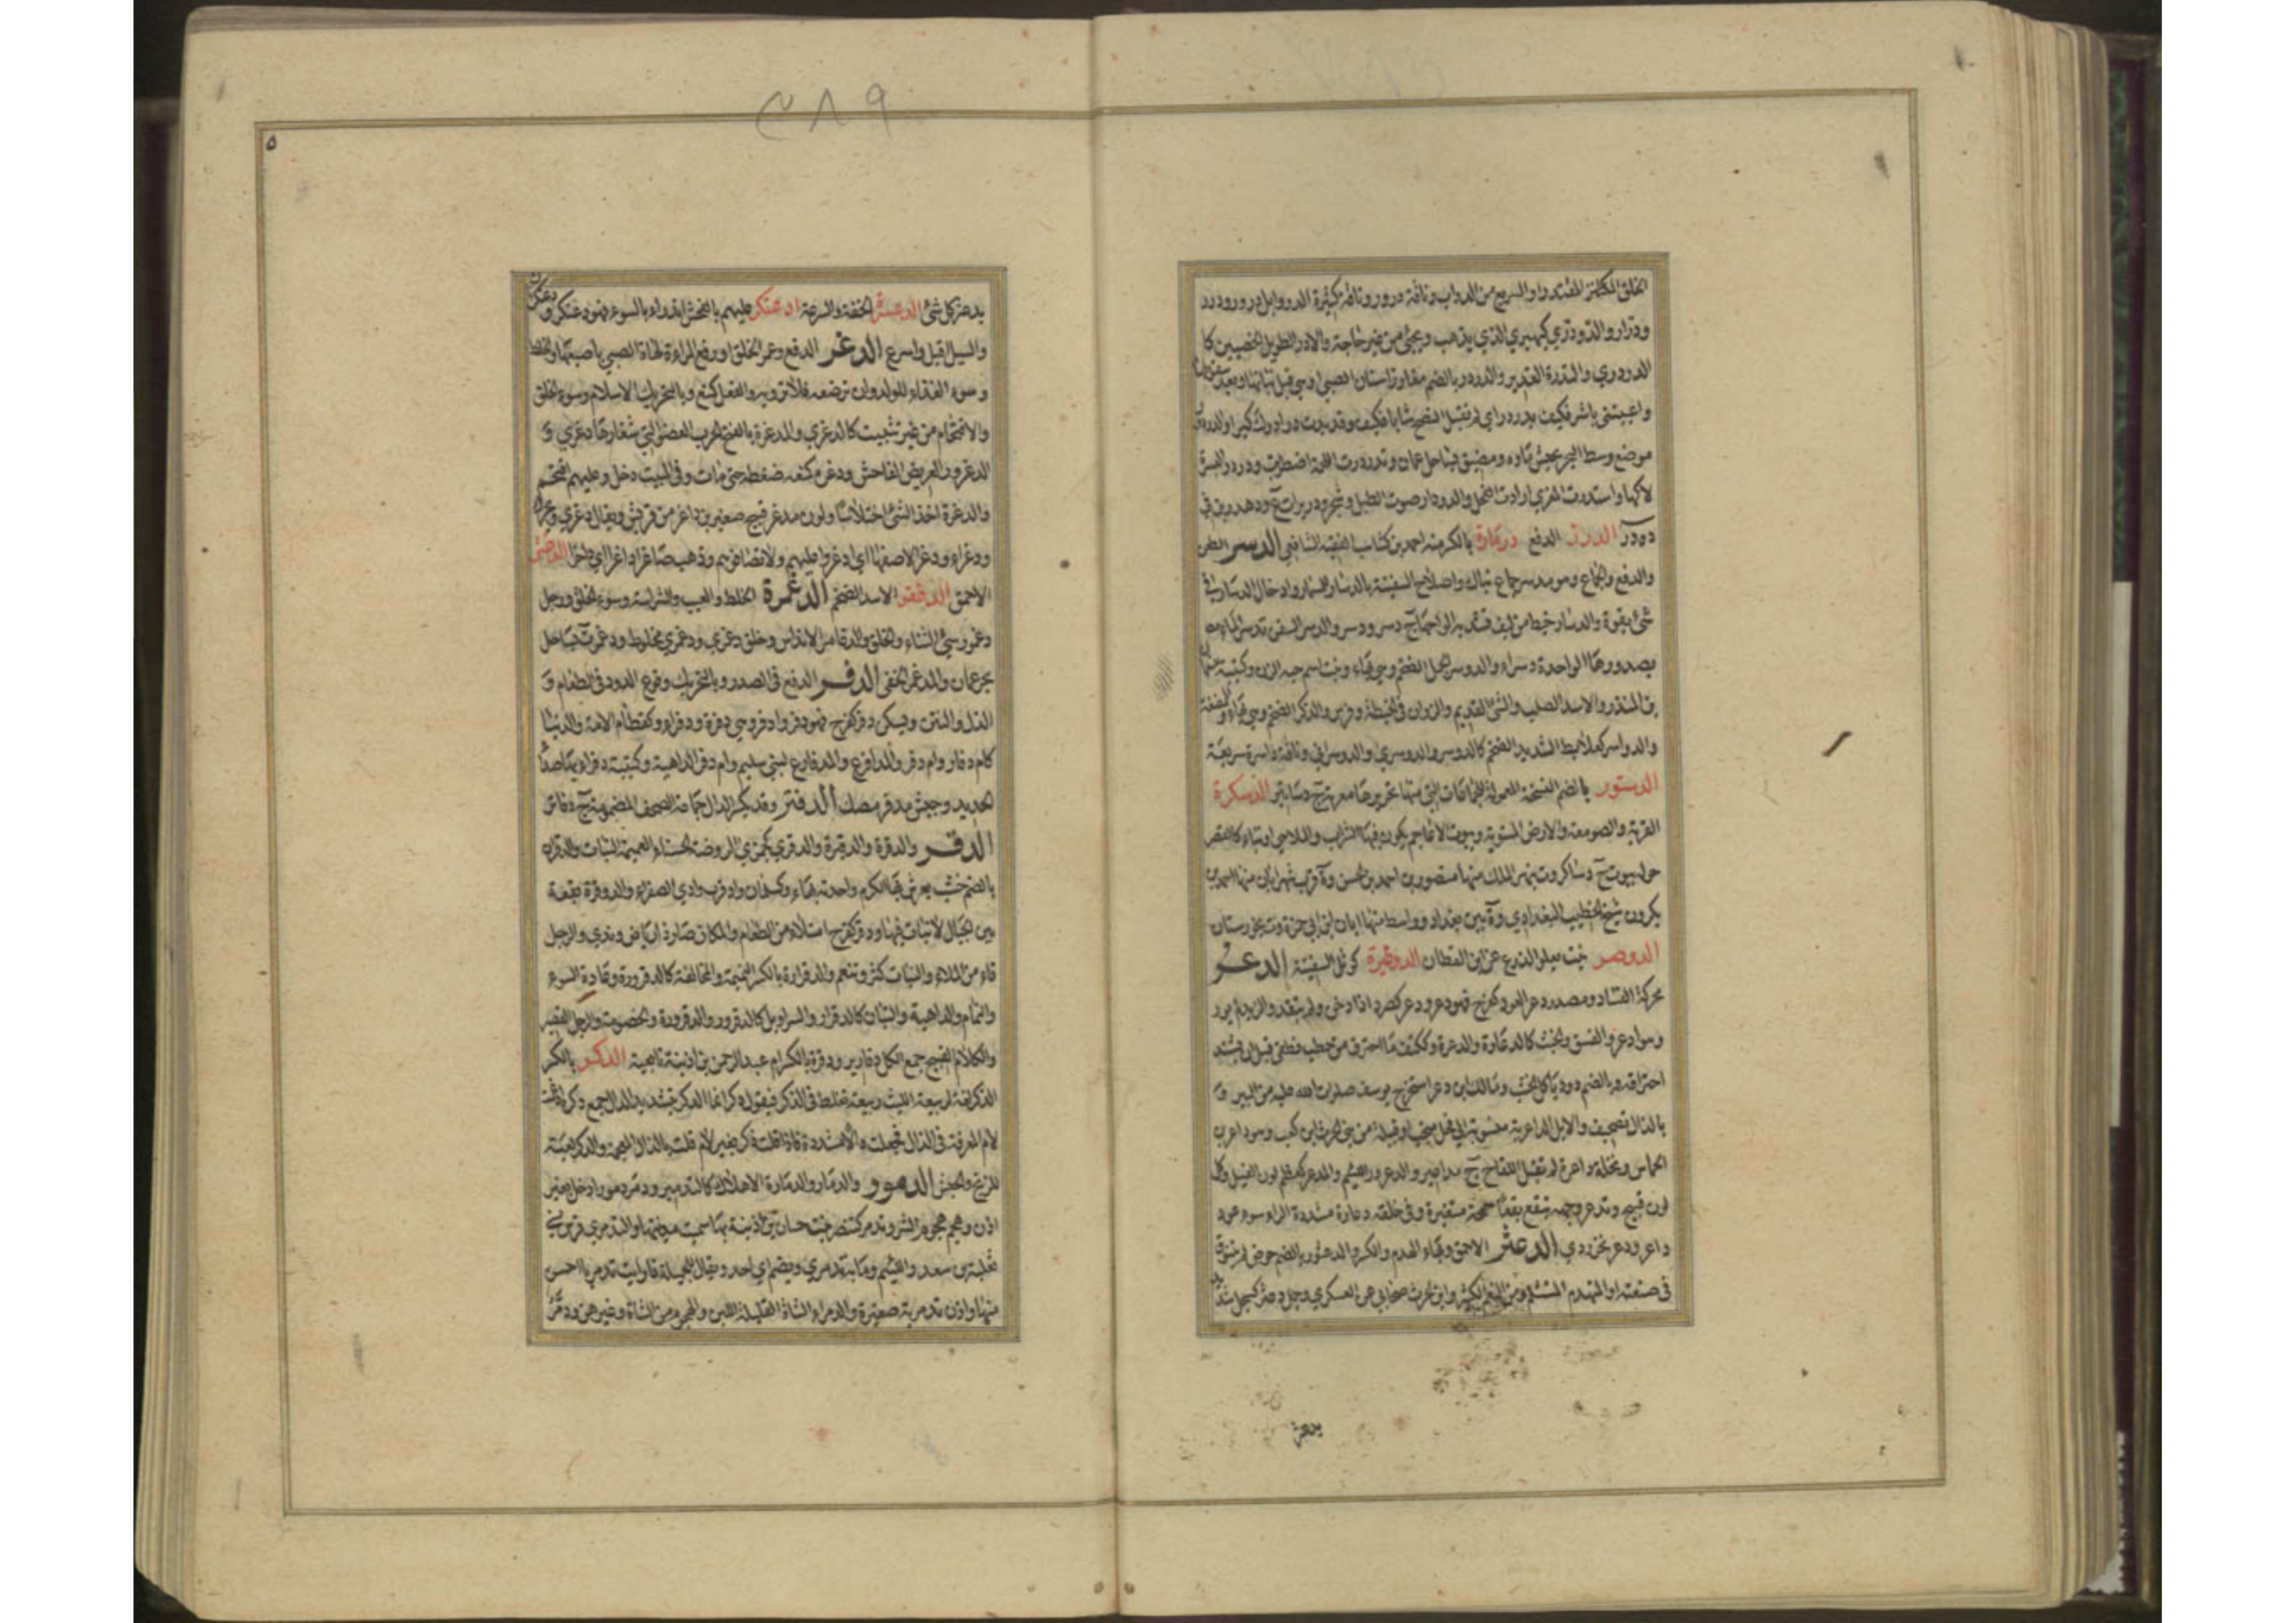 الخلق المكتنز المقتدر او السريع من الدواب وناقة درور وناقة كثيرة الدر وابل درور ودرر
ودرار والدودري كيهيري الذي يذهب ويجئ من غير حاجة والادر الطويل الخصيين كا
الدردري والتدرة الغدير والدردر بالضم مغارز اسنان الصبي او هي قبل نباتها وبعد سقوطها
واعييتني باشر فكيف بدردر اي لم تقبل النصح شابا فكيف وقد بدت درادرك كبرا والدردور
موضع وسط البحر يجيش ماؤه ومضيق بساحل عمان وتدردرت اللحمة اضطربت ودردر البسرة
لاكها واستدرت المعزي ارادت الفحل والدردار صوت الطبل وشجر ودريرات ع ودهدرين في
ده در الدرز الدفع درمارة بالكر منه احمد بن كشاب الفقيه الشافعي الدسر الطعن
والدفع والجماع وهو مدسر جماع نياك واصلاح السفينة بالدسار للمسمار وادخال الدسار في
شئ بقوة والدسار خيط من ليف تشد به الواحها ج دسر ودسر والدسر السفن تدسر الماء
بصدورها الواحدة دسراء والدوسر الجمل الضخم وهي بهاء ونبت اسم حبه الزن وكتيبة
بن المنذر والاسد الصلب والشئ القديم والزوان في الحنطة وفرس والذكر الضخم
والدواسر كعلابط الشديد الضخم كالدوسر والدوسري والدوسراني وناقة داسرة سريعة
الدستور بالضم النسخة المعمولة للجماعات التي منها تحريرها معربة ج دساتير الدسكرة
القرية والصومعة والارض المستوية وبيوت الاعاجم يكون فيها الشراب والملاهي او بناء كالقصر
حوله بيوت ج دساكر وة بنهر الملك منها منصور بن احمد بن الحسن وة قرب شهرابان منها احمد بن
بكرون شيخ الخطيب البغدادي وة بين بغداد وواسط منها ابان ابن ابي حمزة وة بخوزستان
الدوصر نبت يعلو الذرع عن ابن القطان الدوطيرة كوثل السفينة الدعر
محركة الفساد ومصدر دعر العود كفرح فهو دعر ودعر كصرد اذا دخن ولم يتقد والزند لم يور
وهو ادعر والفسق والخبث كالدعارة والدعرة وككتف ما احترق من حطب فطفئ قبل ان يشتد
احتراقه وبالضم دود ياكل الخشب ومالك بن دعر استخرج يوسف صلوات الله عليه من البير
بالذال تصحيف والابل الداعرية منسوبة الى فحل منجب او قبيلة من بني الحرث بن كعب وهو داعر بن
الحماس ونخلة داعرة لم تقبل اللقاح ج مداعير والدعرور اللئيم والمدعر كمعظم لون الفيل وكل
لون قبيح وتدعر وجهه تبقع بقعا سمجة متغيرة وفي خلقه دعارة مشددة الراء سوء عود
داعر ودعر نخر ردي الدعثر الاحمق وبهاء الهدم والكر والدعثور بالضم حوض لم يتنوق
في صنعته او المتهدم المتثلم ومن النعم الكثير وابن الحرث صحابي عن العسكري وجمل دعثر كسبحل شديد
يدعثر
٢٨٩
يدعثر كل شئ الدعسرة الخفة والسرعة ادعنكر عليهم بالفحش اندرا بالسوء فهو دعنكر و
والسيل اقبل واسرع الدغر الدفع وغمز الحلق او رفع المراءة لهاة الصبي باصبعها والخلط
وسوء الغذاء للولد وان ترضعه فلا ترويه والفعل كمنع وبالتحريك الاسلام وسوء الخلق
والاقتحام من غير تثبيت كالدغري والمدغرة بالفتح الحرب العضوض التي شعارها دغري و
الدغرور العريض الفاحش ودغره كمنعه ضغطه حتى مات وفي البيت دخل وعليهم اقتحم
والدغرة اخذ الشئ اختلاسا ولون مدغر قبيح صغير بن داغر من قريش ويقال دغري
ودغراء ودغرا لا صفا اي ادغروا عليهم ولا تصافوهم وذهب صاغرا داغرا اي داخرا الدغثر
الاحمق الدغفر الاسد الضخم الدغمرة الخلط والعيب والشراسة وسوء الخلق ورجل
دغمور سيئ الثناء والخلق والدغامر الاندلس وخلق دغمري ودغمري مخلوط ودغمر ة بساحل
بحر عمان والمدغمر الخفي الدفر الدفع في الصدر وبالتحريك وقوع الدود في الطعام و
الذل والنتن ويسكن دفر كفرح فهو دفر وادفر وهي دفرة ودفراء وكقطام الامة والدنيا
كام دفار وام دفر والمدافر ع والمدفار ع لبني سليم وام دفر الداهية وكتيبة دفراء بها صدأ
الحديد وجيش مدفر مصك الدفتر وقد يكسر الدال جماعة الصحف المضمومة ج دفاتر
الدقر والدقرة والدقيرة والدقري كجمزي الروضة الحسناء العميمة النبات والدقران
بالضم خشب يعرش بها الكرم واحدته بهاء وكسلمان واد قرب وادي الصفراء والدوقرة بقعة
بين الجبال لا نبات فيها ودقر كفرح امتلاء من الطعام والمكان صار ذا رياض وندي والرجل
قاء من الملاء والنبات كثر وتنعم والدقرارة بالكسر النميمة والمخالفة كالدقرورة وعادة السوء
والنمام والداهية والتبان كالدقرار والسراويل كالدقرور والدقرورة والخصومة والرجل القصير
والكلام القبيح جمع الكل دقارير ودقرة بالكسر ام عبد الرحمن بن اذينة تابعية الدكر بالكسر
الذكر لغة لربيعة الليث ربيعة تغلط في الذكر فيقول دكر انما الدكر بتشديد الدال جمع دكرة ادغمت
لام المعرفة في الذال فجعلت دالا مشددة فاذا قلت ذكر بغير لام قلته بالذال المعجمة والدكر لعبة
للزنج والحبش الدمور والدمار والدمارة الاهلاك كالتدمير ودمر دمورا دخل بغير
اذن وهجم هجوم الشر وتدمر كتنصر بنت حسان بن اذينة بها سميت مدينتها والتدمري فرس لبني
ثعلبة بن سعد واللئيم وما به تدمري ويضم اي احد ويقال للجميلة ما رايت تدمريا احسن
منها واذن تدمرية صغيرة والدمراء الشاة القليلة اللبن والهجوم من الشاة وغيرهن ودمر